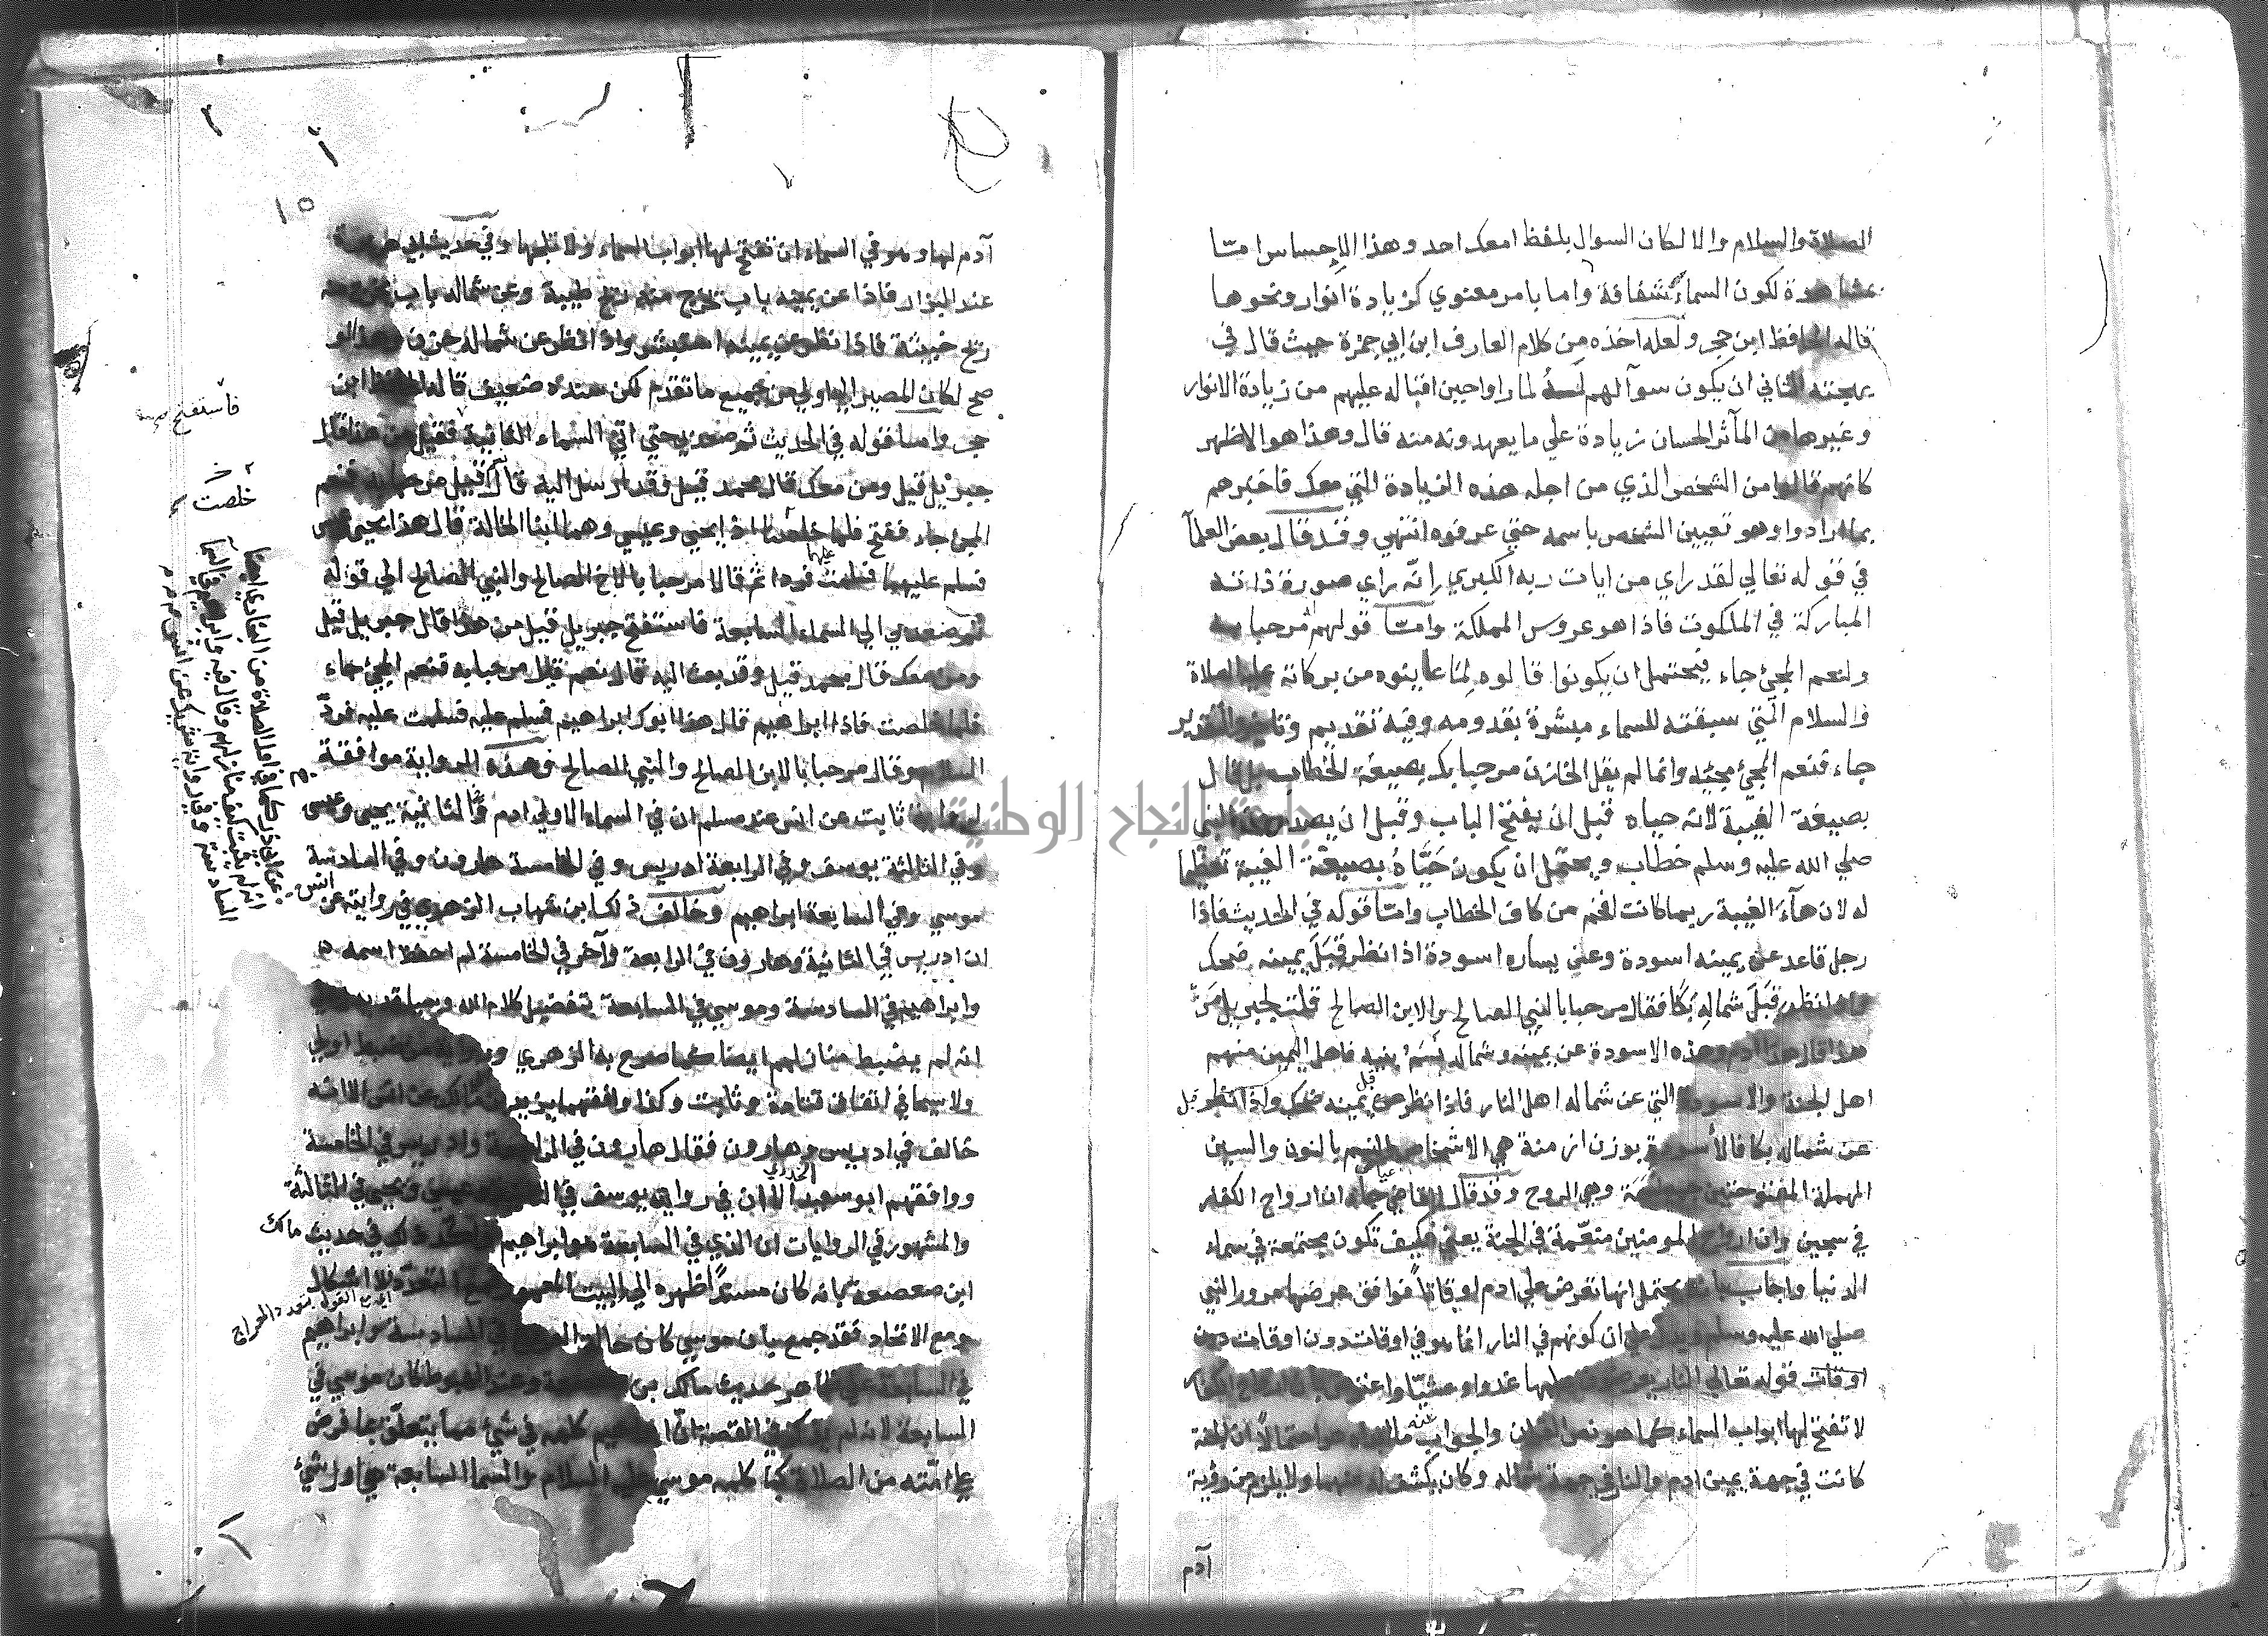 الصلاة والسلام والا لكان السوال بلفظ امعك احد وهذا الاحساس امتا
بمشاهدة لكون السماء شفافة واما بامر معنوي كزيادة انوار ونحوها
قاله الحافظ ابن حجر ولعله اخذه من كلام العارف ابن ابي جمرة حيث قال في
بهجته الثاني ان يكون سوآلهم له لما راوا حين اقباله عليهم من زيادة الانوار
وغيرها من المآثر الحسان زيادة علي ما يعهدونه منه قال وهذا هو الاظهر
كانهم قالوا من الشخص الذي من اجله هذه الزيادة التي معك فاخبرهم
بما ارادوا وهو تعيين الشخص باسمه حتي عرفوه انتهي وقد قال بعض العلمآ
في قوله تعالي لقد راي من ايات ربه الكبري انه راي صورة ذاته
المباركة في الملكوت فاذا هو عروس المملكة وامتا قولهم مرحبا به
ولنعم المجئ جاء فيحتمل ان يكونوا قالوه لما عاينوه من بركاته عليه الصلاة
والسلام التي سبقته للسماء مبشرة بقدومه وفيه تقديم وتاخير والتقدير
جاء فنعم المجئ مجيئه وانما لم يقل الخازن مرحبا بك بصيغة الخطاب بل قال
بصيغة الغيبة لانه حياه قبل ان يفتح الباب وقبل ان يصدر من النبي
صلي الله عليه وسلم خطاب ويحتمل ان يكون حيّاه بصيغة الغيبة تعظيما
له لان هآء الغيبة ربما كانت افخم من كاف الخطاب وامتا قوله في الحديث فاذا
رجل قاعد عن يمينه اسودة وعن يساره اسودة اذا نظر قبل يمينه ضحك
واذا نظر قبل شماله بكا فقال مرحبا بالنبي الصالح والابن الصالح قلت لجبريل من
هذا قال هذا ادم وهذه الاسودة عن يمينه وشماله نسم بنيه فاهل اليمين منهم
اهل الجنة والاسودة التي عن شماله اهل النار فاذا نظر عن يمينه ضحك واذا نظر قبل
عن شماله بكا فالأسودة بوزن ازمنة هي الاشخاص والنسم بالنون والسين
المهملة المفتوحتين جمع نسمة وهي الروح وقد قال القاضي عياض جاء ان ارواح الكفار
في سجين وان ارواح المومنين منعّمة في الجنة يعني فكيف تكون مجتمعة في سماء
الدنيا واجاب بانه يحتمل انها تعرض علي ادم اوقاتا فوافق عرضها مرور النبي
صلي الله عليه وسلم ويدل علي ان كونهم في النار انما هو في اوقات دون اوقات
اوقات قوله تعالي النار يعرضون عليها غدوا وعشيّا واعترض بان ارواح الكفار
لا تفتح لها ابواب السماء كما هو نص القران والجواب عنه احتمالا ان الجنة
كانت في جهة يمين ادم والنار في جهة شماله وكان يكشف له عنهما ولا يلزم من رؤية
آدم
١٥
آدم لها وهو في السماء ان تفتح لها ابواب السماء ولا تلجها وفي حديث ابي هريرة
عند البزار فاذا عن يمينه باب يخرج منه ريح طيبة وعن شماله باب يخرج منه
ريح خبيثة فاذا نظر عن يمينه استبشر واذا نظر عن شماله حزن وهذا لو
صح لكان المصير اليه اولي من جميع ما تقدم لكن سنده ضعيف قاله الحافظ ابن
حجر وامتا قوله في الحديث ثم صعد بي حتي اتي السماء الثانية فقيل من هذا قال
جبريل قيل ومن معك قال محمد قيل وقد ارسل اليه قال قيل مرحبا به فنعم
المجئ جاء ففتح فلما خلصت اذا بيحيي وعيسي وهما ابنا الخالة قال هذا يحيي وعيسي
فسلم عليهما فسلمت فردا ثم قالا مرحبا بالاخ الصالح والنبي الصالح الي قوله
ثم صعد بي الي السماء السابعة فاستفتح جبريل قيل من هذا قال جبريل قيل
ومن معك قال محمد قيل وقد بعث اليه قال نعم قيل مرحبا به فنعم المجئ جاء
فلما خلصت فاذا ابراهيم قال هذا ابوك ابراهيم فسلم عليه فسلمت عليه فردّ
السلام وقال مرحبا بالابن الصالح والنبي الصالح وهذه الرواية موافقة
لرواية ثابت عن انس عند مسلم ان في السماء الاولي ادم وفي الثانية يحيي وعيسي
وفي الثالثة يوسف وفي الرابعة ادريس وفي الخامسة هارون وفي السادسة
موسي وفي السابعة ابراهيم وخالف ذلك ابن شهاب الزهري في روايته عن انس
ان ادريس في الثانية وهارون في الرابعة وآخر في الخامسة لم احفظ اسمه
وابراهيم في السادسة وموسي في السابعة بتفضيل كلام الله
انه لم يضبط منازلهم ايضا كما صرح به الزهري ورواية من ضبط اولي
ولا سيما في اتفاق قتادة وثابت وكذا وافقهما يزيد بن ابي مالك عن انس الا انه
خالف في ادريس وهارون فقال هارون في الرابعة وادريس في الخامسة
ووافقهم ابو سعيد الخدري الا ان في روايته يوسف في الثانية وعيسي ويحيي في الثالثة
والمشهور في الروايات ان الذي في السابعة هو ابراهيم واكد ذلك في حديث مالك
ابن صعصعة بانه كان مسندا ظهره الي البيت المعمور فمع التعدد لا اشكال
ومع الاتحاد فقد جمع بان موسي كان حالة العروج في السادسة وابراهيم
في السابعة علي ظاهر حديث مالك بن صعصعة وعند الهبوط كان موسي في
السابعة لانه لم يذكر في القصة ان ابراهيم كلمه في شئ مما يتعلق بما فرض
علي امّته من الصلاة كما كلمه موسي عليه السلام والسما السابعة هي اول شئ
فاستفتح
خلصت
ايعني القول بتعدد المعراج